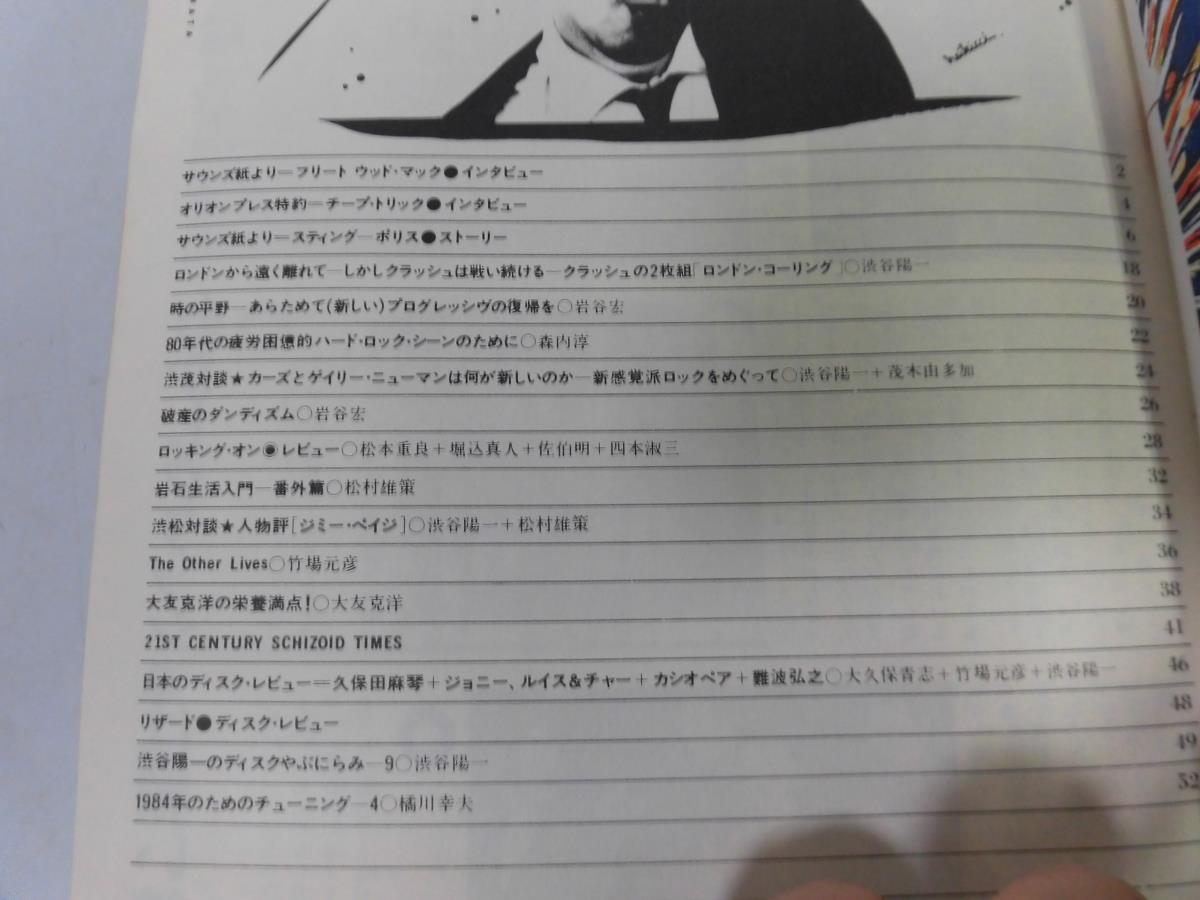 サウンズ紙より＝フリート ウッド・マック●インタビュー 2
オリオンプレス特約＝チープ・トリック●インタビュー 4
サウンズ紙より＝スティング—ポリス●ストーリー 6
ロンドンから遠く離れて—しかしクラッシュは戦い続ける—クラッシュの2枚組「ロンドン・コーリング」○渋谷陽一 18
時の平野—あらためて(新しい)プログレッシヴの復帰を○岩谷宏 20
80年代の疲労困憊的ハード・ロック・シーンのために○森内淳 22
渋茂対談★カーズとゲイリー・ニューマンは何が新しいのか—新感覚派ロックをめぐって○渋谷陽一＋茂木由多加 24
破産のダンディズム○岩谷宏 26
ロッキング・オン◉レビュー○松本重良＋堀込真人＋佐伯明＋四本淑三 28
岩石生活入門—番外篇○松村雄策 32
渋松対談★人物評[ジミー・ペイジ]○渋谷陽一＋松村雄策 34
The Other Lives○竹場元彦 36
大友克洋の栄養満点!○大友克洋 38
21ST CENTURY SCHIZOID TIMES 41
日本のディスク・レビュー＝久保田麻琴＋ジョニー、ルイス&チャー＋カシオペア＋難波弘之○大久保青志＋竹場元彦＋渋谷陽一 46
リザード●ディスク・レビュー 48
渋谷陽一のディスクやぶにらみ—9○渋谷陽一 49
1984年のためのチューニング—4○橘川幸夫 52